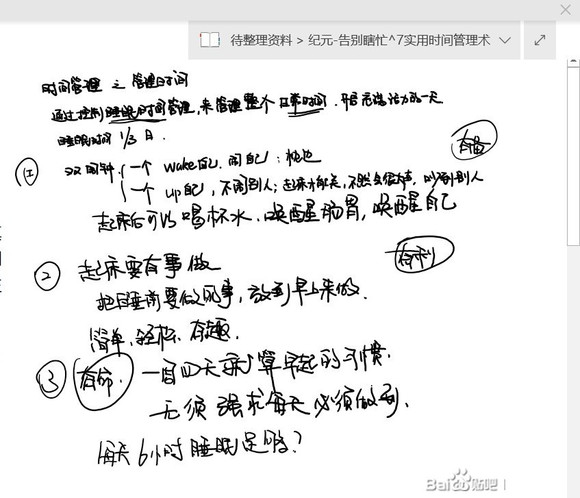 待整理资料 > 纪元-告别瞎忙^7实用时间管理术
时间管理 之 管理时间
通过控制睡眠时间管理,来管理整个日常时间,开启充满活力的一天
睡眠时间 1/3 日.
① 双闹钟 一个 wake自己,闹自己:
有备
一个 up自己,不闹别人;起来才能关,不然会很大声,吵到别人
起床后可以喝杯水,唤醒肠胃,唤醒自己
② 起床要有事做
有利
把睡前要做的事,放到早上来做.
简单,轻松,有趣.
③ 有命. 一周四天就算早起的习惯.
无须强求每天必须做到.
每天 6小时睡眠足够?
Baidu贴吧